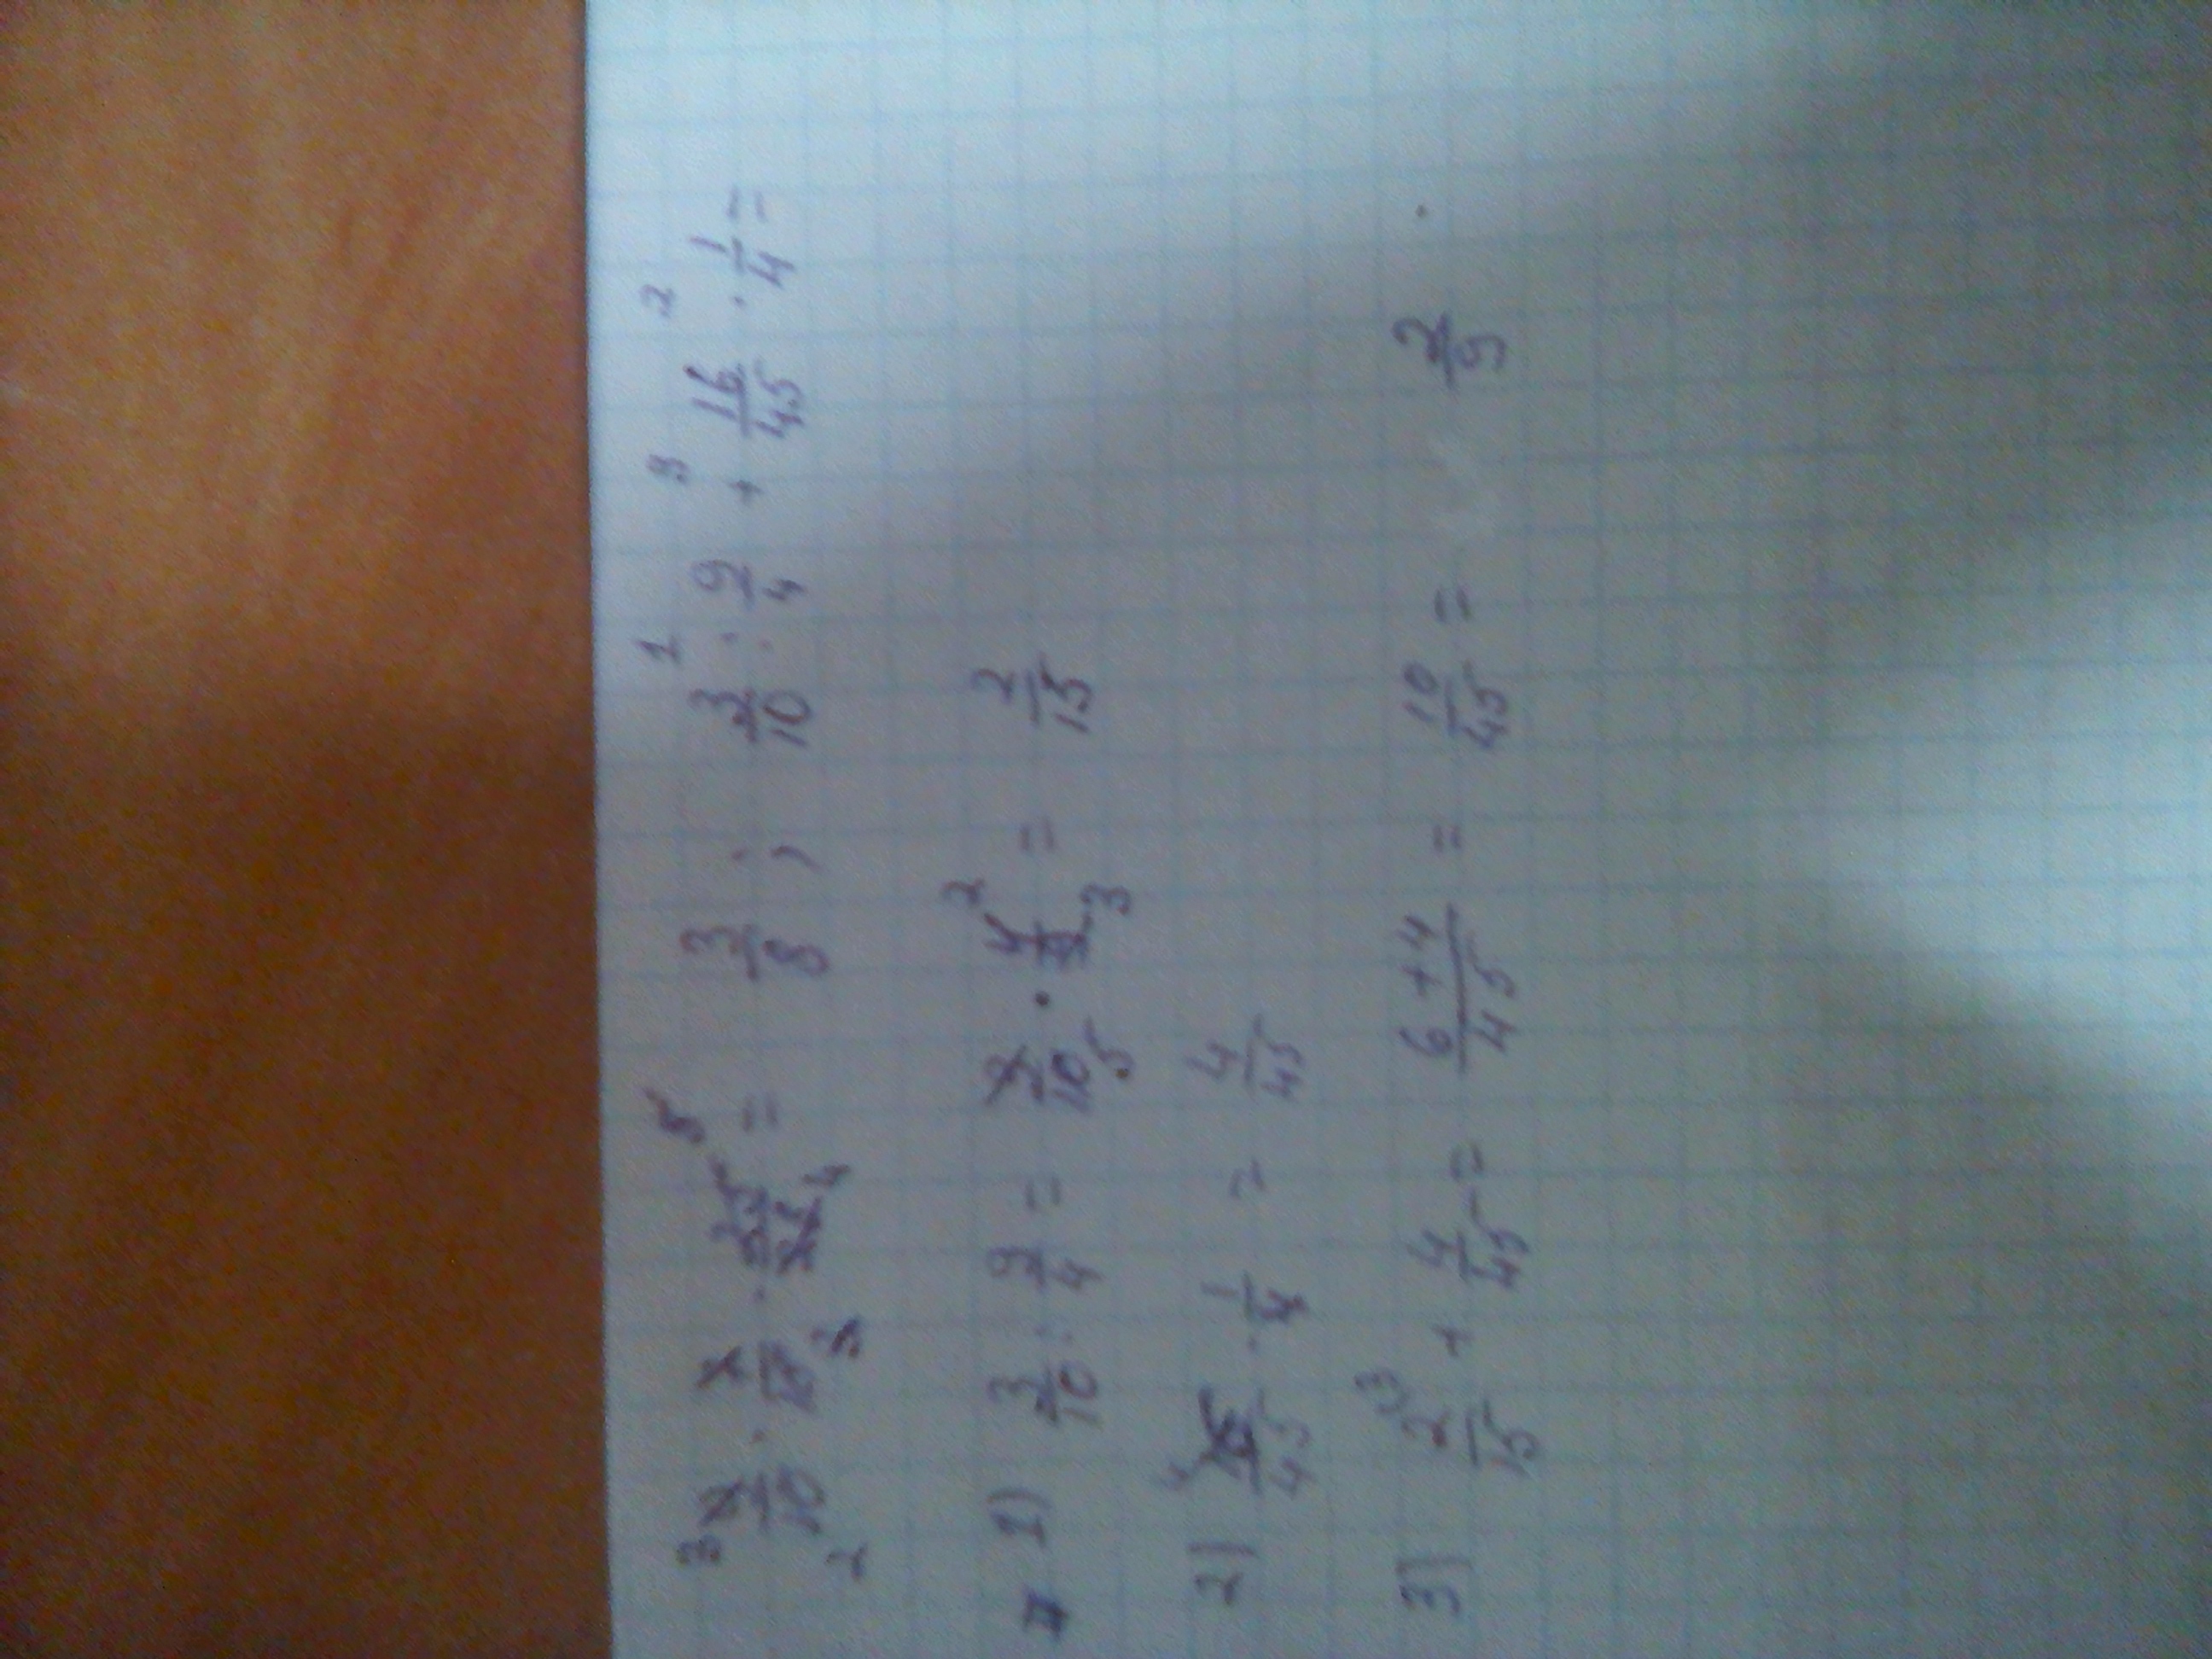 3/8 ; 3/10 : 9/4 + 16/45 · 1/4 =
1) 3/10 : 9/4 = 3/10 · 4/9 = 2/15
2) 16/45 · 1/4 = 4/45
3) 2/15 + 4/45 = 6+4/45 = 10/45 = 2/9